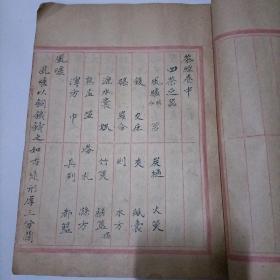 茶經卷中
四茶之器
風爐灰承 筥 炭檛 火筴
鍑 交床 夾 紙囊
碾 羅合 則 水方
漉水囊 瓢 竹筴
熟盂 盌 畚 札 滌方
滓方 巾 具列 都籃
風爐
風爐以銅鐵鑄之如古鼎形厚三分闊